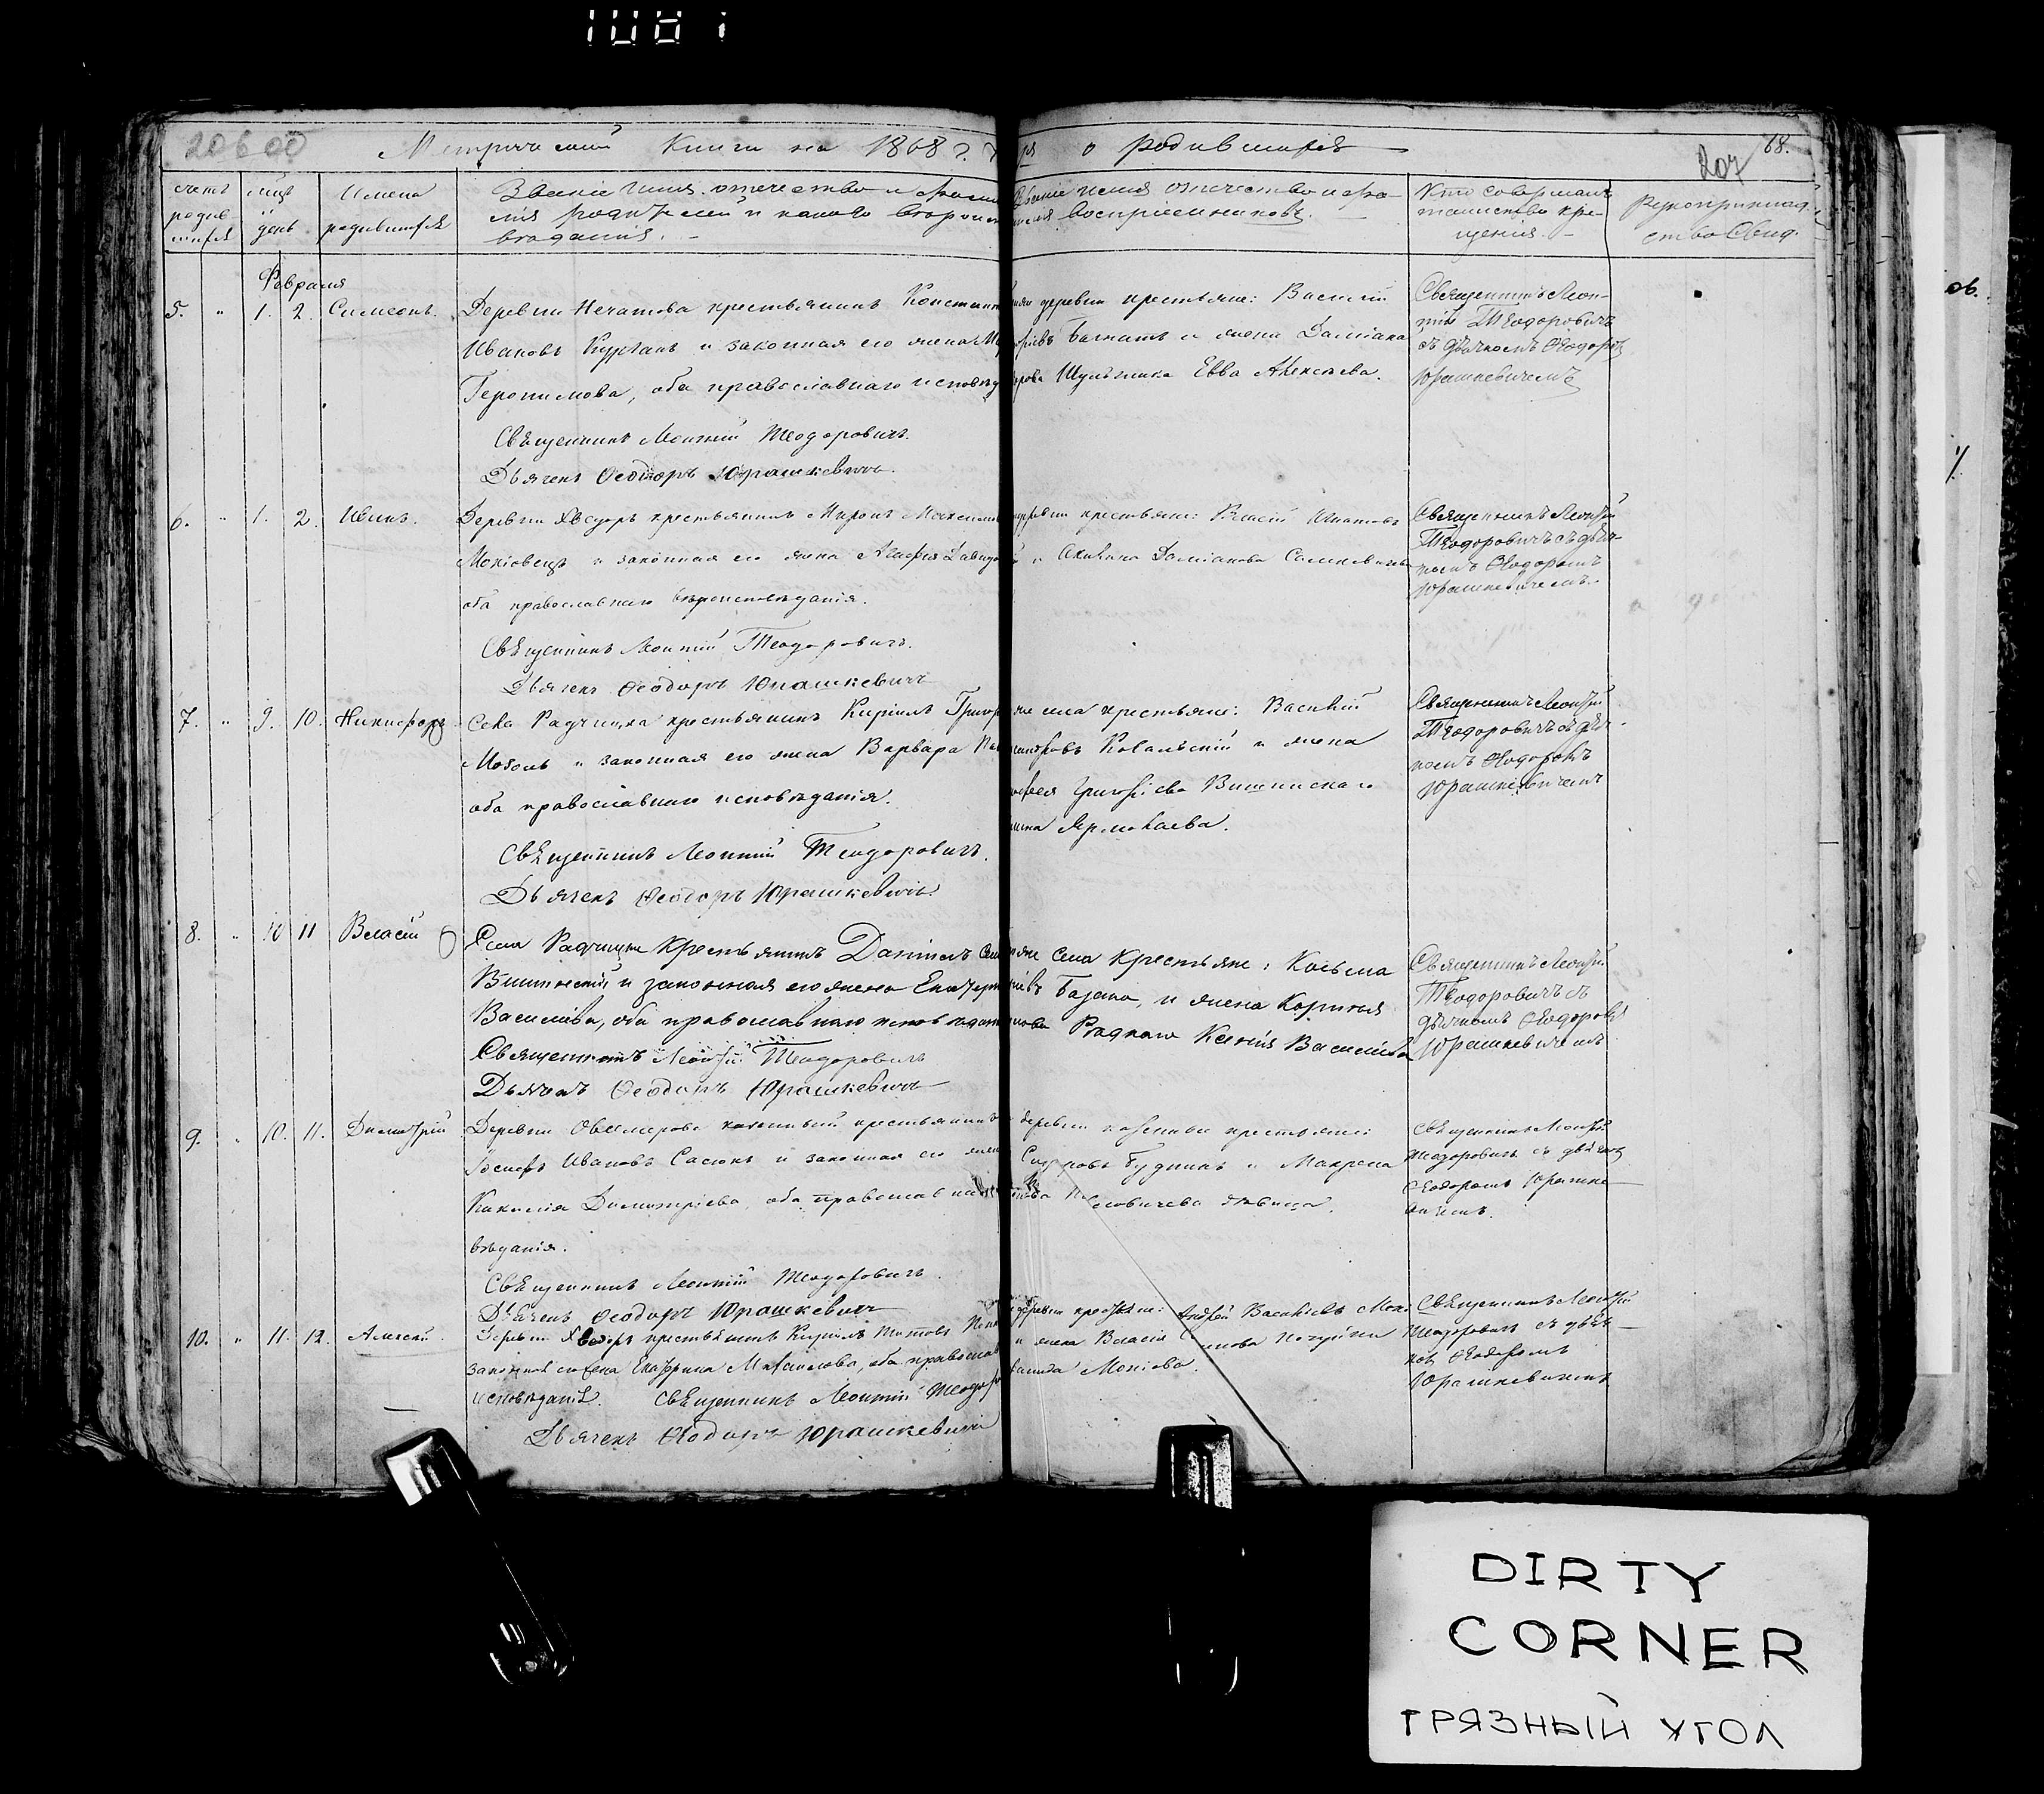 206 об
Метрической Книги на 1868 г.
о родившихся
207
68.
счетъ родив шихся
мѣсяцъ и день
Имена родившихся
Званіе имя отечество и фами
лія родителей и какого вѣроис
вѣданія.
Званіе имя отечество и фа-
милія воспріемниковъ.
Кто совершалъ
таинство кре-
щенія.
Рукоприклад-
ство Свид.
Февраля
5. " 1. 2. Симеонъ.
Деревни Нечатова крестьянинъ Констант
Ивановъ Курганъ и законная его жена М
Геронимова, оба православнаго исповѣд
Священникъ Леонтій Теодоровичъ.
Дьячекъ Ѳеодоръ Юрашкевичъ.
деревни крестьяне: Василій
Багнетъ и жена Даміана
Шульжика Евва Алексѣева.
Священникъ Леон-
тій Теодоровичъ
съ дьячкомъ Ѳеодоромъ
Юрашкевичемъ
6. " 1. 2. Иванъ.
Деревни Хведоръ крестьянинъ Миронъ Максим
и законная его жена Агафія Давидо
оба православнаго вѣроисповѣданія.
Священникъ Леонтій Теодоровичъ.
Дьячекъ Ѳеодоръ Юрашкевичъ
деревни крестьяне: Власій Игнатовъ
и Акилина Даміанова
Священникъ Леонтій
Теодоровичъ съ дьяч-
комъ Ѳеодоромъ
Юрашкевичемъ.
7. " 9. 10. Никифоръ
Села Радчицка крестьянинъ Кирилъ Григор
Мозоль и законная его жена Варвара
оба православнаго исповѣданія.
Священникъ Леонтій Теодоровичъ.
Дьячекъ Ѳеодоръ Юрашкевичъ.
села крестьяне: Василій
Ковальскій и жена
Григоріева Вишнискаго
Ермолаева.
Священникъ Леонтій
Теодоровичъ съ дьяч-
комъ Ѳеодоромъ
Юрашкевичемъ
8. " 10 11 Власій
Села Радчицка Крестьянинъ Даніилъ Сем
и законная его жена Екатер
Василіева, оба православнаго исповѣдан
Священникъ Леонтій Теодоровичъ
Дьячекъ Ѳеодоръ Юрашкевичъ
села Крестьяне: Косьма
Базана, и жена Корнилія
Редкаго Ксенія Василіева
Священникъ Леонтій
Теодоровичъ съ
дьячкомъ Ѳеодоромъ
Юрашкевичемъ
9. " 10. 11. Димитрій
Деревни Овсемерова казенный крестьянинъ
Іосифъ Ивановъ Сасюкъ и законная его жен
Димитріева, оба православна
вѣданія.
Священникъ Леонтій Теодоровичъ.
Дьячекъ Ѳеодоръ Юрашкевичъ
деревни казенные крестьяне:
Сидоровъ Будникъ и Макрена
дѣвица.
Священникъ Леонтій
Теодоровичъ съ дьячк
Ѳеодоромъ Юрашке
вичемъ.
10. " 11. 12. Алексій.
Деревни Хведоръ крестьянинъ Кирилъ Титовъ
законная его жена Екатерина Михаилова, оба православ
исповѣданія. Священникъ Леонтій Теодор
Дьячекъ Ѳеодоръ Юрашкевичъ
деревни крестьяне: Андрей Василіевъ
и жена Власія
Священникъ Леонтій
Теодоровичъ съ дьяч-
комъ Ѳеодоромъ
Юрашкевичемъ
ов.
DIRTY
CORNER
ГРЯЗНЫЙ УГОЛ